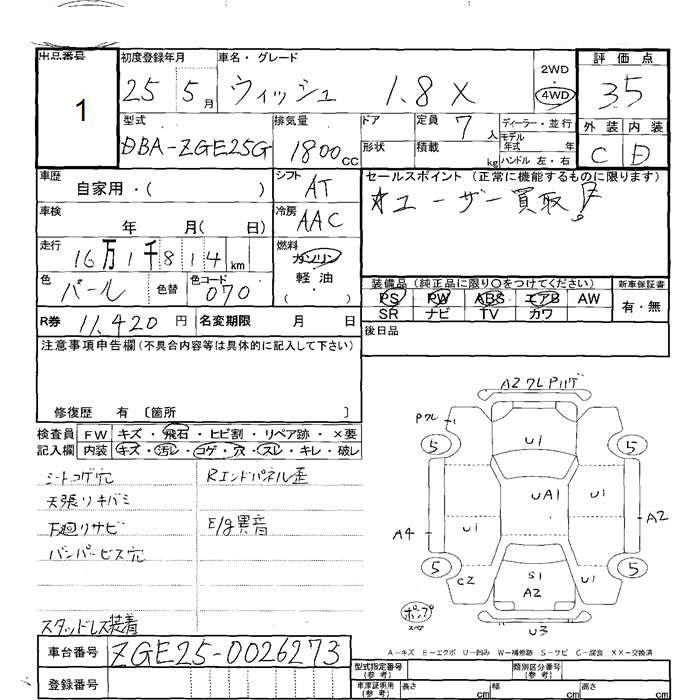 出品番号 初度登録年月 車名・グレード 2WD 評価点
1 25 5月 ウィッシュ 1.8 X ・4WD 3.5
型式 排気量 ドア 定員 7人 ディーラー・並行 外装 内装
DBA-ZGE25G 1800cc 形状 積載 kg モデル年式 年 C D
ハンドル 左・右
車歴 シフト セールスポイント (正常に機能するものに限ります)
自家用・( ) AT ☆ユーザー買取!
車検 冷房
年 月( 日) AAC
走行 燃料
16万1千814km ガソリン
色 色替 色コード 軽油
パール 070 ( ・ )
装備品 (純正品に限り〇をつけてください) 新車保証書
PS PW ABS エアB AW 有・無
SR ナビ TV カワ
R券 11,420円 名変期限 月 日 後日品
注意事項申告欄 (不具合内容等は具体的に記入して下さい)
修復歴 有 〔箇所 〕
検査員 FW キズ・飛石・ヒビ割・リペア跡・×要
記入欄 内装 キズ・汚レ・コゲ・穴・スレ・キレ・破レ
シートコゲ穴 Rエンドパネル歪
天張リキバミ
下廻リサビ E/g異音
バンパービス穴
スタッドレス装着
A2 ワレ Pハゲ
Pワレ
5 U1 5
UA1 U1
A4 U1 A2
5 C2 S1 A2 U1 5
ポンプ
U3
A-キズ E-エクボ U-凹み W-補修跡 S-サビ C-腐食 XX-交換済
車台番号 ZGE25-0026273
登録番号
型式指定番号(参考) 類別区分番号(参考)
車庫証明用(参考) 長さ cm 幅 cm 高さ cm